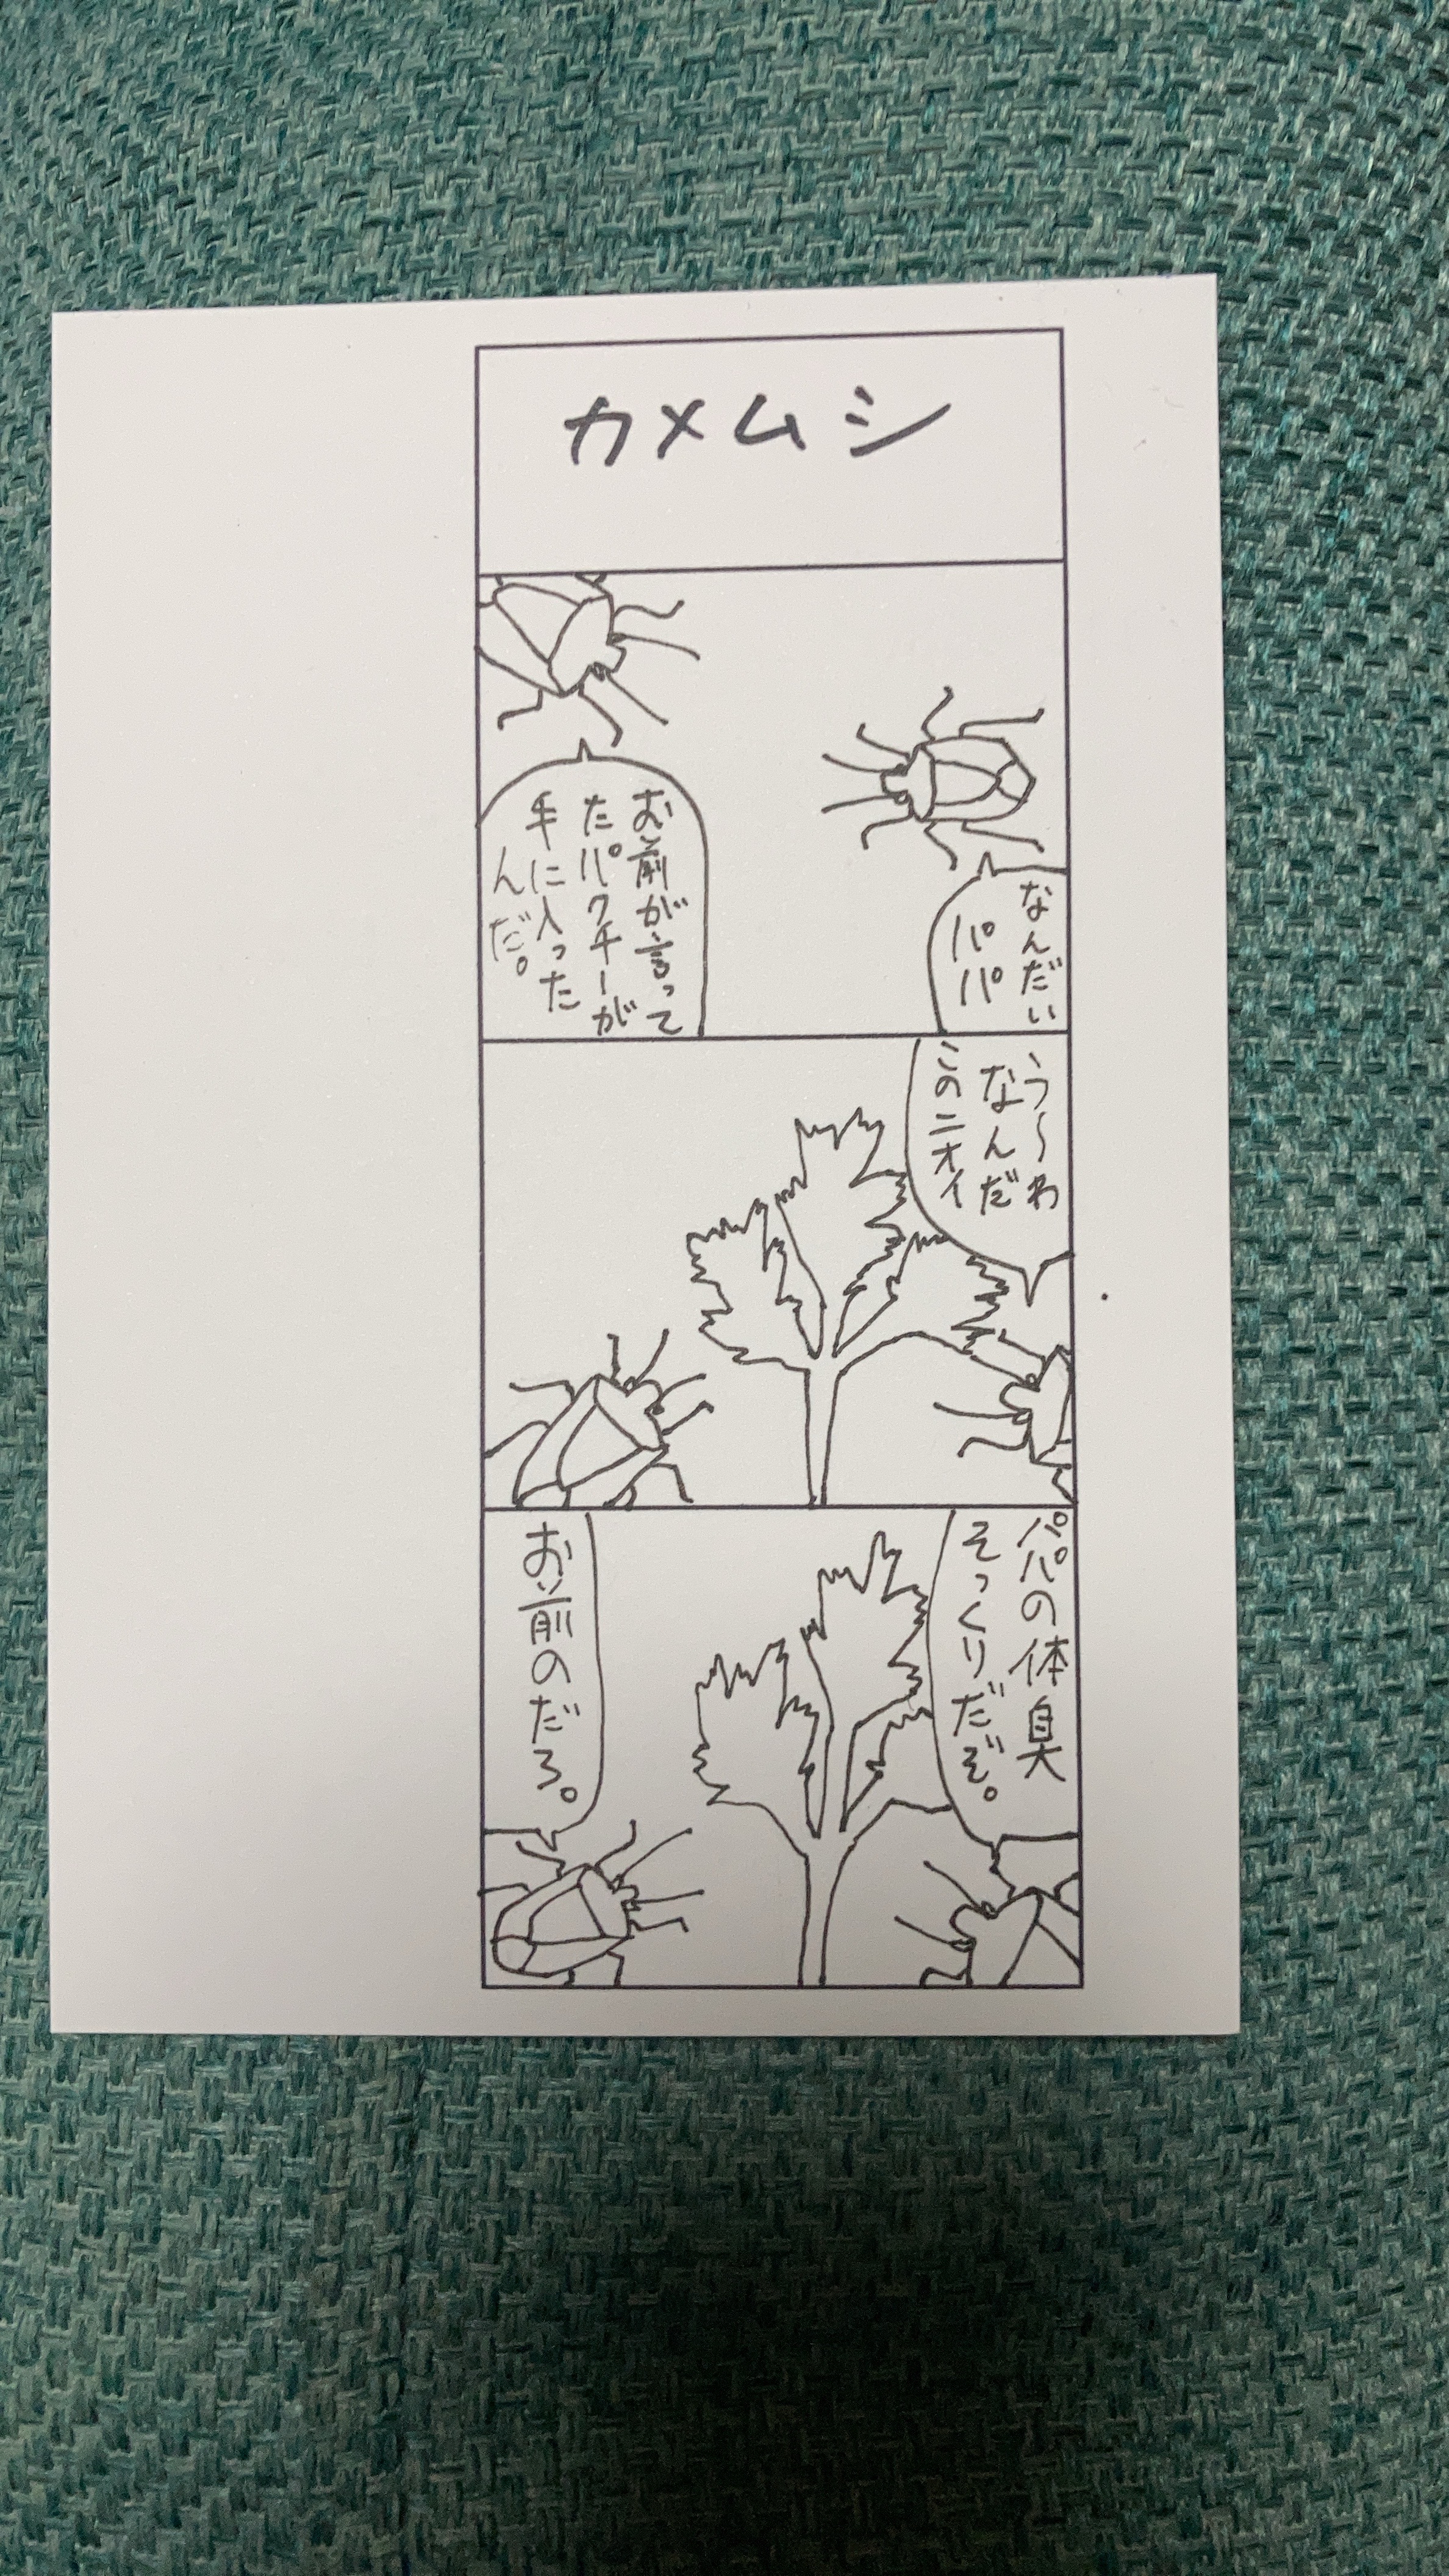 カメムシ
なんだい
パパ
お前が言って
たパクチーが
手に入った
んだ。
う〜わ
なんだ
このニオイ
パパの体臭
そっくりだぞ。
お前のだろ。